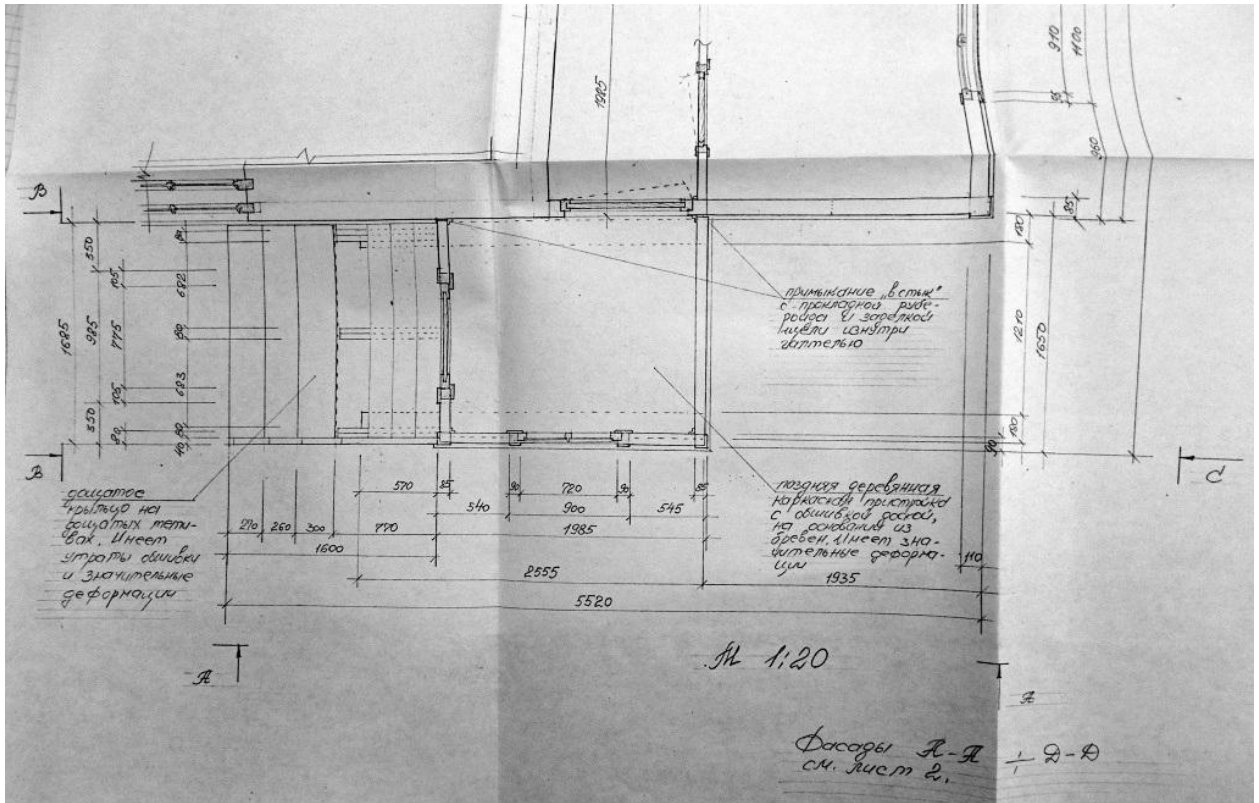 1985
910
1100
85
960
В
85
180
1210
1650
180
90
350
80
105
682
1685
985
775
80
683
105
350
80
80
40
В
примыкание „в стык"
с прокладкой рубе-
роида и заделкой
щели изнутри
галтелью
дощатое
крыльцо на
дощатых тети-
вах. Имеет
утраты обшивки
и значительные
деформации
поздняя деревянная
каркасная пристройка
с обшивкой доской,
на основании из
бревен. Имеет зна-
чительные деформа-
ции
С
570
85
90
720
90
85
540
900
545
270
260
300
770
1985
1600
110
2555
1935
5520
А
М 1:20
А
Фасады А-А ÷ Д-Д
см. лист 2.